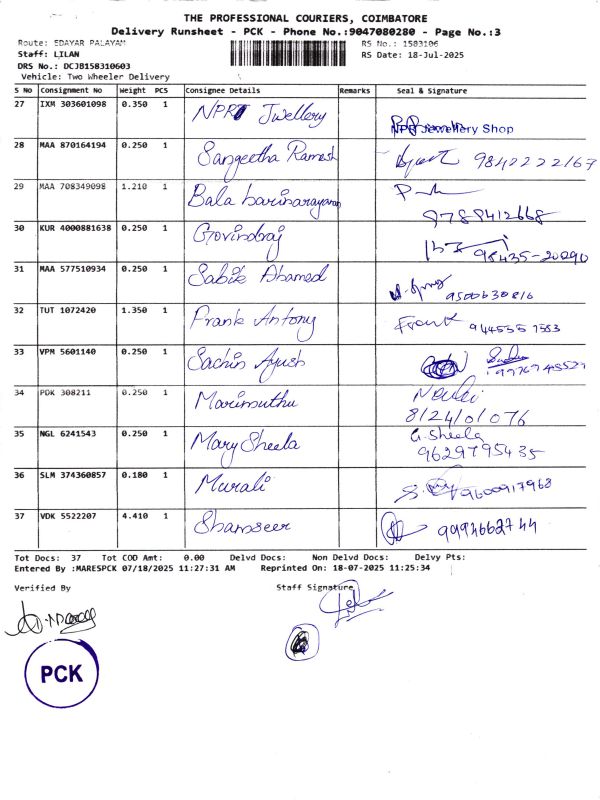 THE PROFESSIONAL COURIERS, COIMBATORE
Delivery Runsheet - PCK - Phone No.:9047080280 - Page No.:3
Route: EDAYAR PALAYAM
RS No.: 1583106
Staff: LILAN
RS Date: 18-Jul-2025
DRS No.: DCJB158310603
Vehicle: Two Wheeler Delivery
S No Consignment No Weight PCS Consignee Details Remarks Seal & Signature
27 IXM 303601098 0.350 1 NPR Jwellery NPR Jewellery Shop
28 MAA 870164194 0.250 1 Sangeetha Ramesh 9842222167
29 MAA 708349098 1.210 1 Bala harinarayanan
9788412668
30 KUR 4000881638 0.250 1 Govindraj 98435-20090
31 MAA 577510934 0.250 1 Sabik Ahamed
9500630816
32 TUT 1072420 1.350 1 Frank Antony Frank 944555 7583
33 VPM 5601140 0.250 1 Sachin Ayush
34 PDK 308211 0.250 1 Marimuthu
8124101076
35 NGL 6241543 0.250 1 Mary Sheela G. Sheela
9629795435
36 SLM 374360857 0.180 1 Murali 9600917968
37 VDK 5522207 4.410 1 Shamseer 9994662744
Tot Docs: 37 Tot COD Amt: 0.00 Delvd Docs: Non Delvd Docs: Delvy Pts:
Entered By :MARESPCK 07/18/2025 11:27:31 AM Reprinted On: 18-07-2025 11:25:34
Verified By Staff Signature
PCK